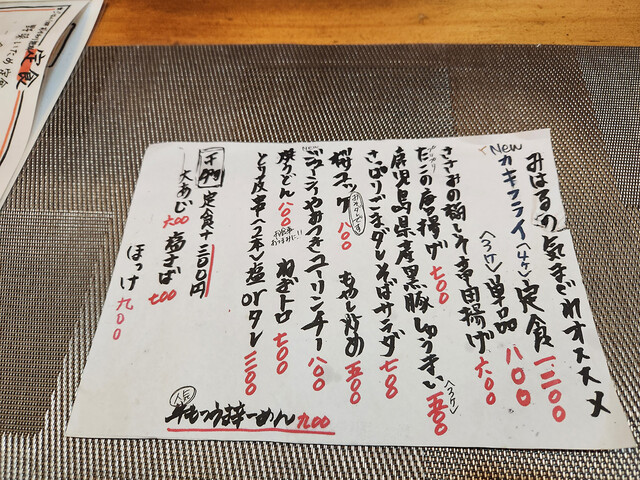 みはるの気まぐれオススメ
New
カキフライ〈4ケ〉定食 一二〇〇
〈3ケ〉単品 八〇〇
ささみの梅しそ春巻揚げ 六〇〇
たこの唐揚げ 七〇〇
鹿児島県産黒豚しゅうまい〈3ケ〉 五〇〇
さっぱりごまダレそばサラダ 七〇〇
桜ユッケ 八〇〇 もやし炒め 五〇〇
New
ジューシィやみつきユーリンチー 八〇〇
焼うどん 八〇〇 ねぎトロ 七〇〇
とり皮串〈2本〉塩orタレ 三〇〇
人気
牛もつうま辛らーめん 九〇〇
定食+三〇〇円
大あじ 六〇〇 塩さば 七〇〇
ほっけ 九〇〇
定食
野菜いため定食